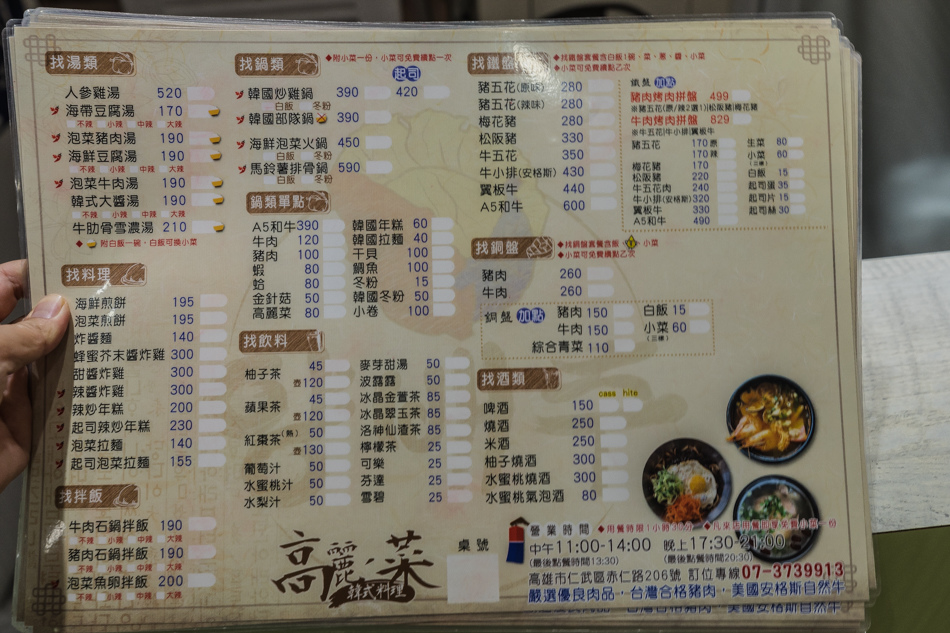 找湯類
人參雞湯 520
海帶豆腐湯 170
不辣 小辣 中辣 大辣
泡菜豬肉湯 190
海鮮豆腐湯 190
不辣 小辣 中辣 大辣
泡菜牛肉湯 190
韓式大醬湯 190
不辣 小辣 中辣 大辣
牛肋骨雪濃湯 210
◆附白飯一碗，白飯可換小菜
找料理
海鮮煎餅 195
泡菜煎餅 195
炸醬麵 140
蜂蜜芥末醬炸雞 300
甜醬炸雞 300
辣醬炸雞 300
辣炒年糕 200
起司辣炒年糕 230
泡菜拉麵 140
起司泡菜拉麵 155
找拌飯
牛肉石鍋拌飯 190
不辣 小辣 中辣 大辣
豬肉石鍋拌飯 190
不辣 小辣 中辣 大辣
泡菜魚卵拌飯 200
不辣 小辣 中辣 大辣
找鍋類
◆附小菜一份，小菜可免費續點一次
起司
韓國炒雞鍋 390 420
白飯 冬粉
韓國部隊鍋 390
海鮮泡菜火鍋 450
白飯 冬粉
馬鈴薯排骨鍋 590
白飯 冬粉
鍋類單點
A5和牛 390
牛肉 120
豬肉 100
蝦 80
蛤 80
金針菇 50
高麗菜 80
韓國年糕 60
韓國拉麵 40
干貝 100
鯛魚 100
冬粉 15
韓國冬粉 50
小卷 100
找飲料
柚子茶 45
壺 120
蘋果茶 45
壺 120
紅棗茶(熱) 50
壺 130
葡萄汁 50
水蜜桃汁 50
水梨汁 50
麥芽甜湯 50
波露露 50
冰晶金萱茶 85
冰晶翠玉茶 85
洛神仙渣茶 85
檸檬茶 25
可樂 25
芬達 25
雪碧 25
高麗菜
韓式料理
桌號
找鐵盤
◆找鐵盤套餐含白飯1碗、菜、蔥、雞、小菜
◆小菜可免費續點乙次
豬五花(原味) 280
豬五花(辣味) 280
梅花豬 280
松阪豬 330
牛五花 350
牛小排(安格斯) 430
翼板牛 440
A5和牛 600
鐵盤 加點
豬肉烤肉拼盤 499
※豬五花(原/辣2選1)松阪豬|梅花豬
牛肉烤肉拼盤 829
※牛五花|牛小排|翼板牛
豬五花 170原
170辣
梅花豬 170
松阪豬 220
牛五花肉 240
牛小排(安格斯) 320
翼板牛 330
A5和牛 490
生菜 80
小菜 60
(三樣)
白飯 15
起司蛋 35
起司片 15
起司絲 30
找銅盤
◆找銅盤套餐含飯、小菜
◆小菜可免費續點乙次
豬肉 260
牛肉 260
銅盤 加點
豬肉 150
牛肉 150
綜合青菜 110
白飯 15
小菜 60
(三樣)
找酒類
cass hite
啤酒 150
燒酒 250
米酒 250
柚子燒酒 300
水蜜桃燒酒 300
水蜜桃氣泡酒 80
營業時間 ◆用餐時限1小時30分
中午11:00-14:00 晚上17:30-21:00
(最後點餐時間13:30) (最後點餐時間20:30)
高雄市仁武區赤仁路206號 訂位專線07-3739913
嚴選優良肉品，台灣合格豬肉，美國安格斯自然牛